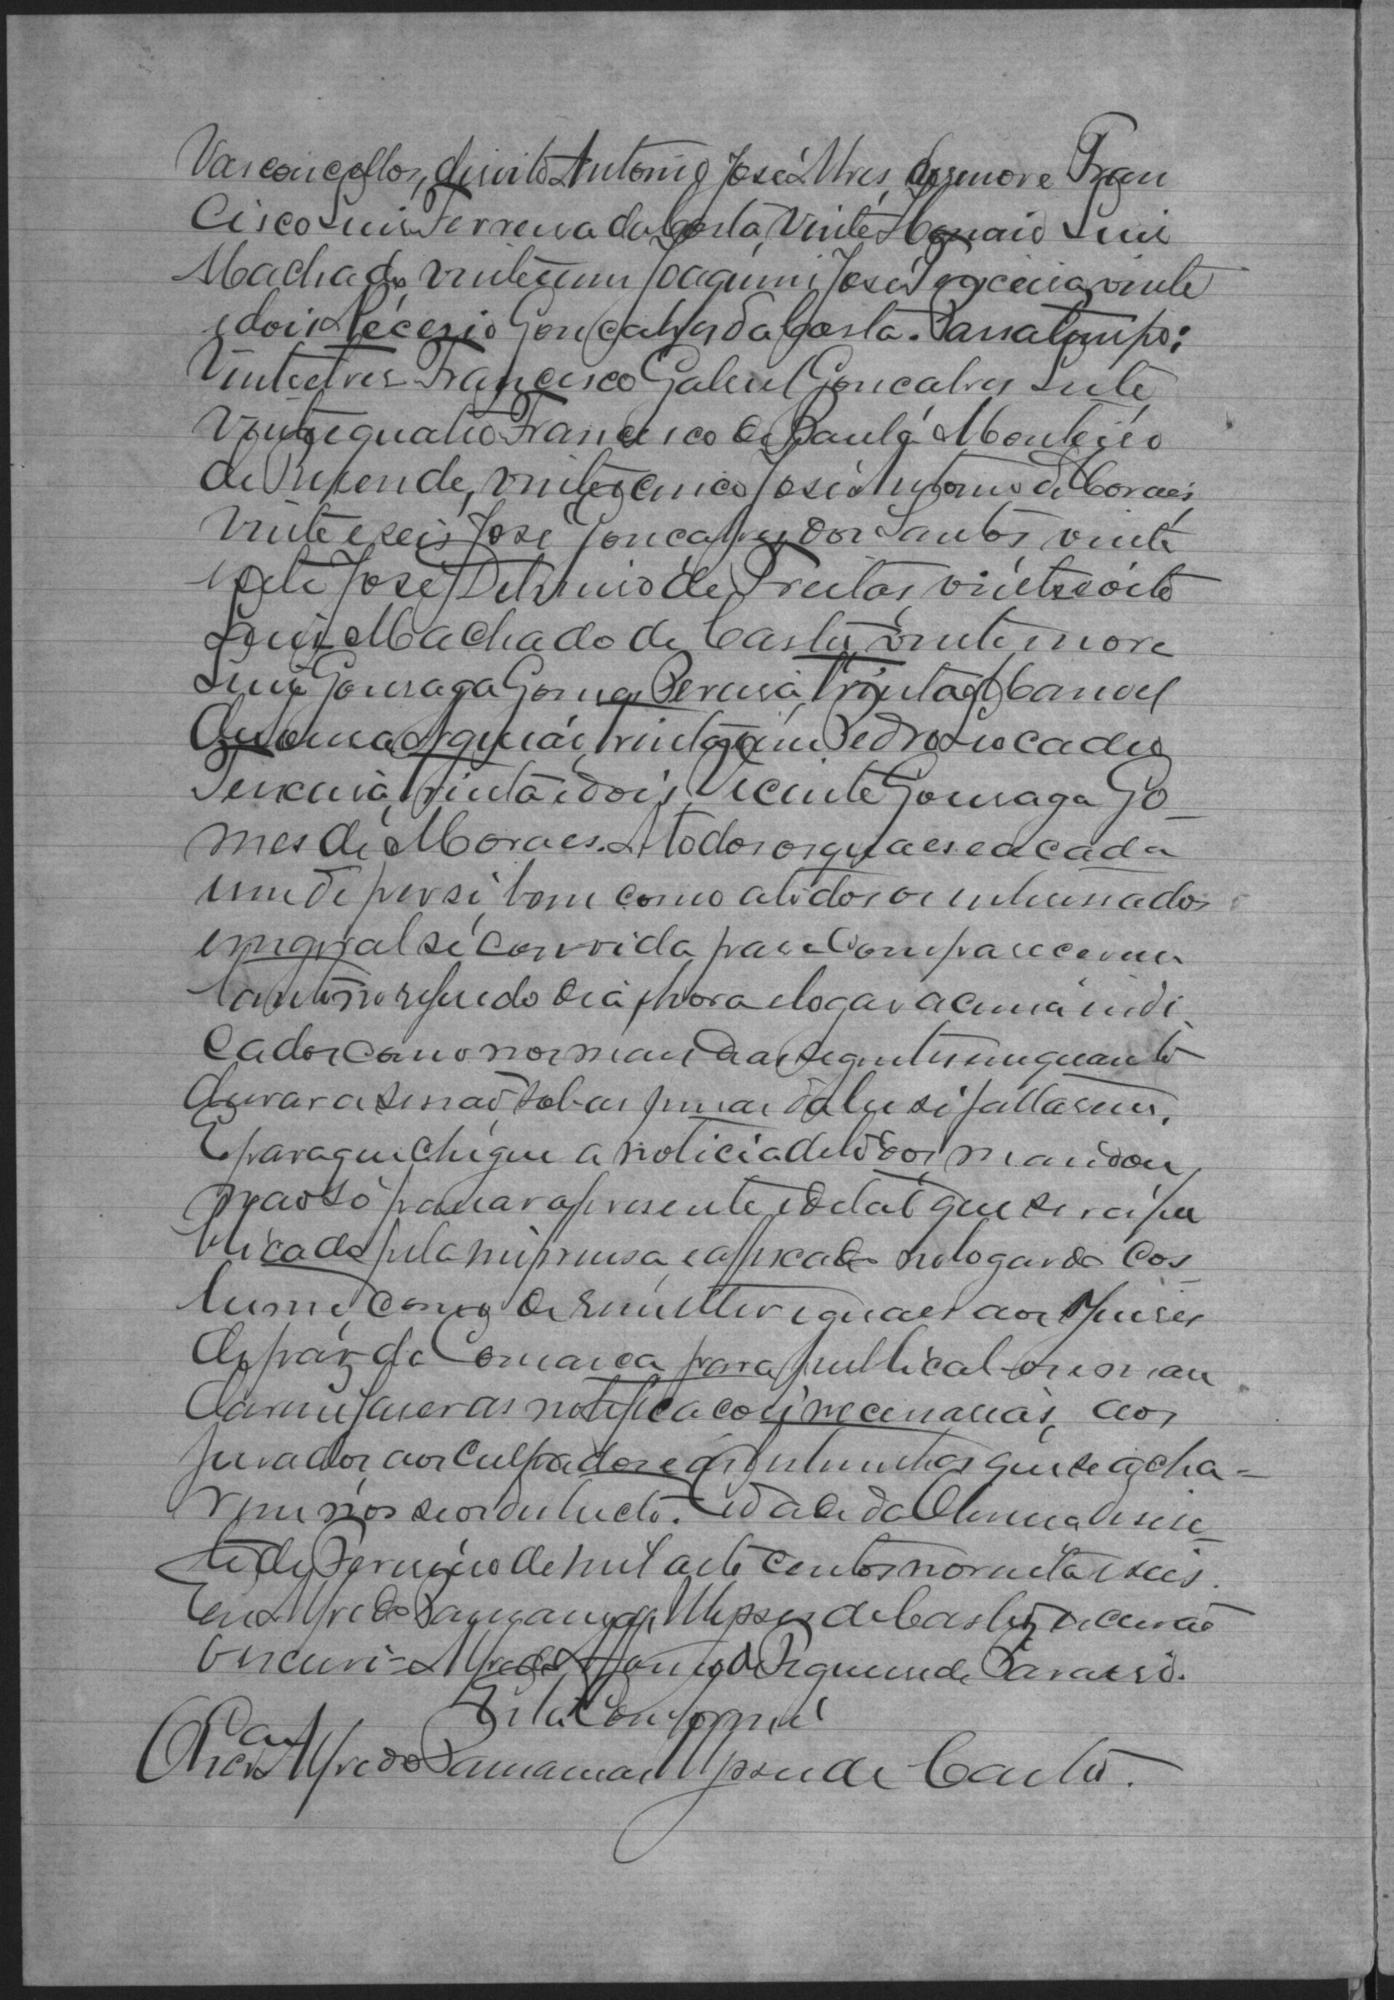 Vasconcellos, desoito Antonio José Alves, desenove Fran
cisco Luis Ferreira da Costa, vinte Honaio Luis
Machado, vinte e um Joaquim José Ignacia, vinte
e dois Lécesio Gonçalves da Costa. Passatempo:
Vinte e tres Francisco Gabriel Goncalves Leite
vinte e quatro Francisco de Paula Monteiro
de Resende, vinte e cinco José Antonio de Moraes,
vinte e seis José Gonçalves dos Santos vinte
e sete José Delfinio de Freitas, vinte e oito
Luis Machado de Castro, vinte nove
Luis Gonsaga Gomes Pereira, trinta Manoel
trinta e um Pedro Leocadio
Ferreira, trinta e dois, Vicente Gonsaga Go-
mes de Moraes. A todos os quaes e a cada
um de per si, bem como a todos os interessados
em geral se convida para comparecerem
tanto no referido dia e hora e logar acima indi
cados como nos mais dias seguintes emquanto
durar a sessaõ sob as penas da lei si faltarem.
E para que chegue a noticia de todos mandou
naõ só passar a presente edital que será pu
blicado pela imprensa, e afficado no logar do cos-
tume, como de remetter iguaes aos Juises
de paz da Comarca para publical-os e man
darem faser as notificacões necessarias, aos
jurados, aos culpados e ás testemunhas que se acha-
rem nos seos districto. Cidade da Oliveira desese-
te de Fevereiro de mil oito centos noventa e seis.
Eu Alfredo Paranamas Ulysses de Castro, escrivaõ
o escrevi = Alfredo Affonso de Figueiredo Paraiso.
Está conforme
O Escrivaõ Alfredo Paranamas Ulysses de Castro.